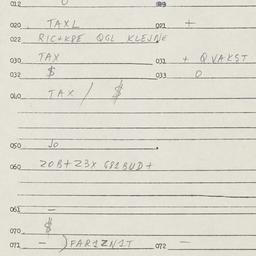 012 0
020 TAXL 021 +
022 RIC+KPE QGL KLEJNE
030 TAX 031 + QVAKST
032 $ 033 0
040 TAX / $
050 Jo
060 20B+23X 681BUD+
061 —
070 $
071 — )FAR1ZN1T 072 —